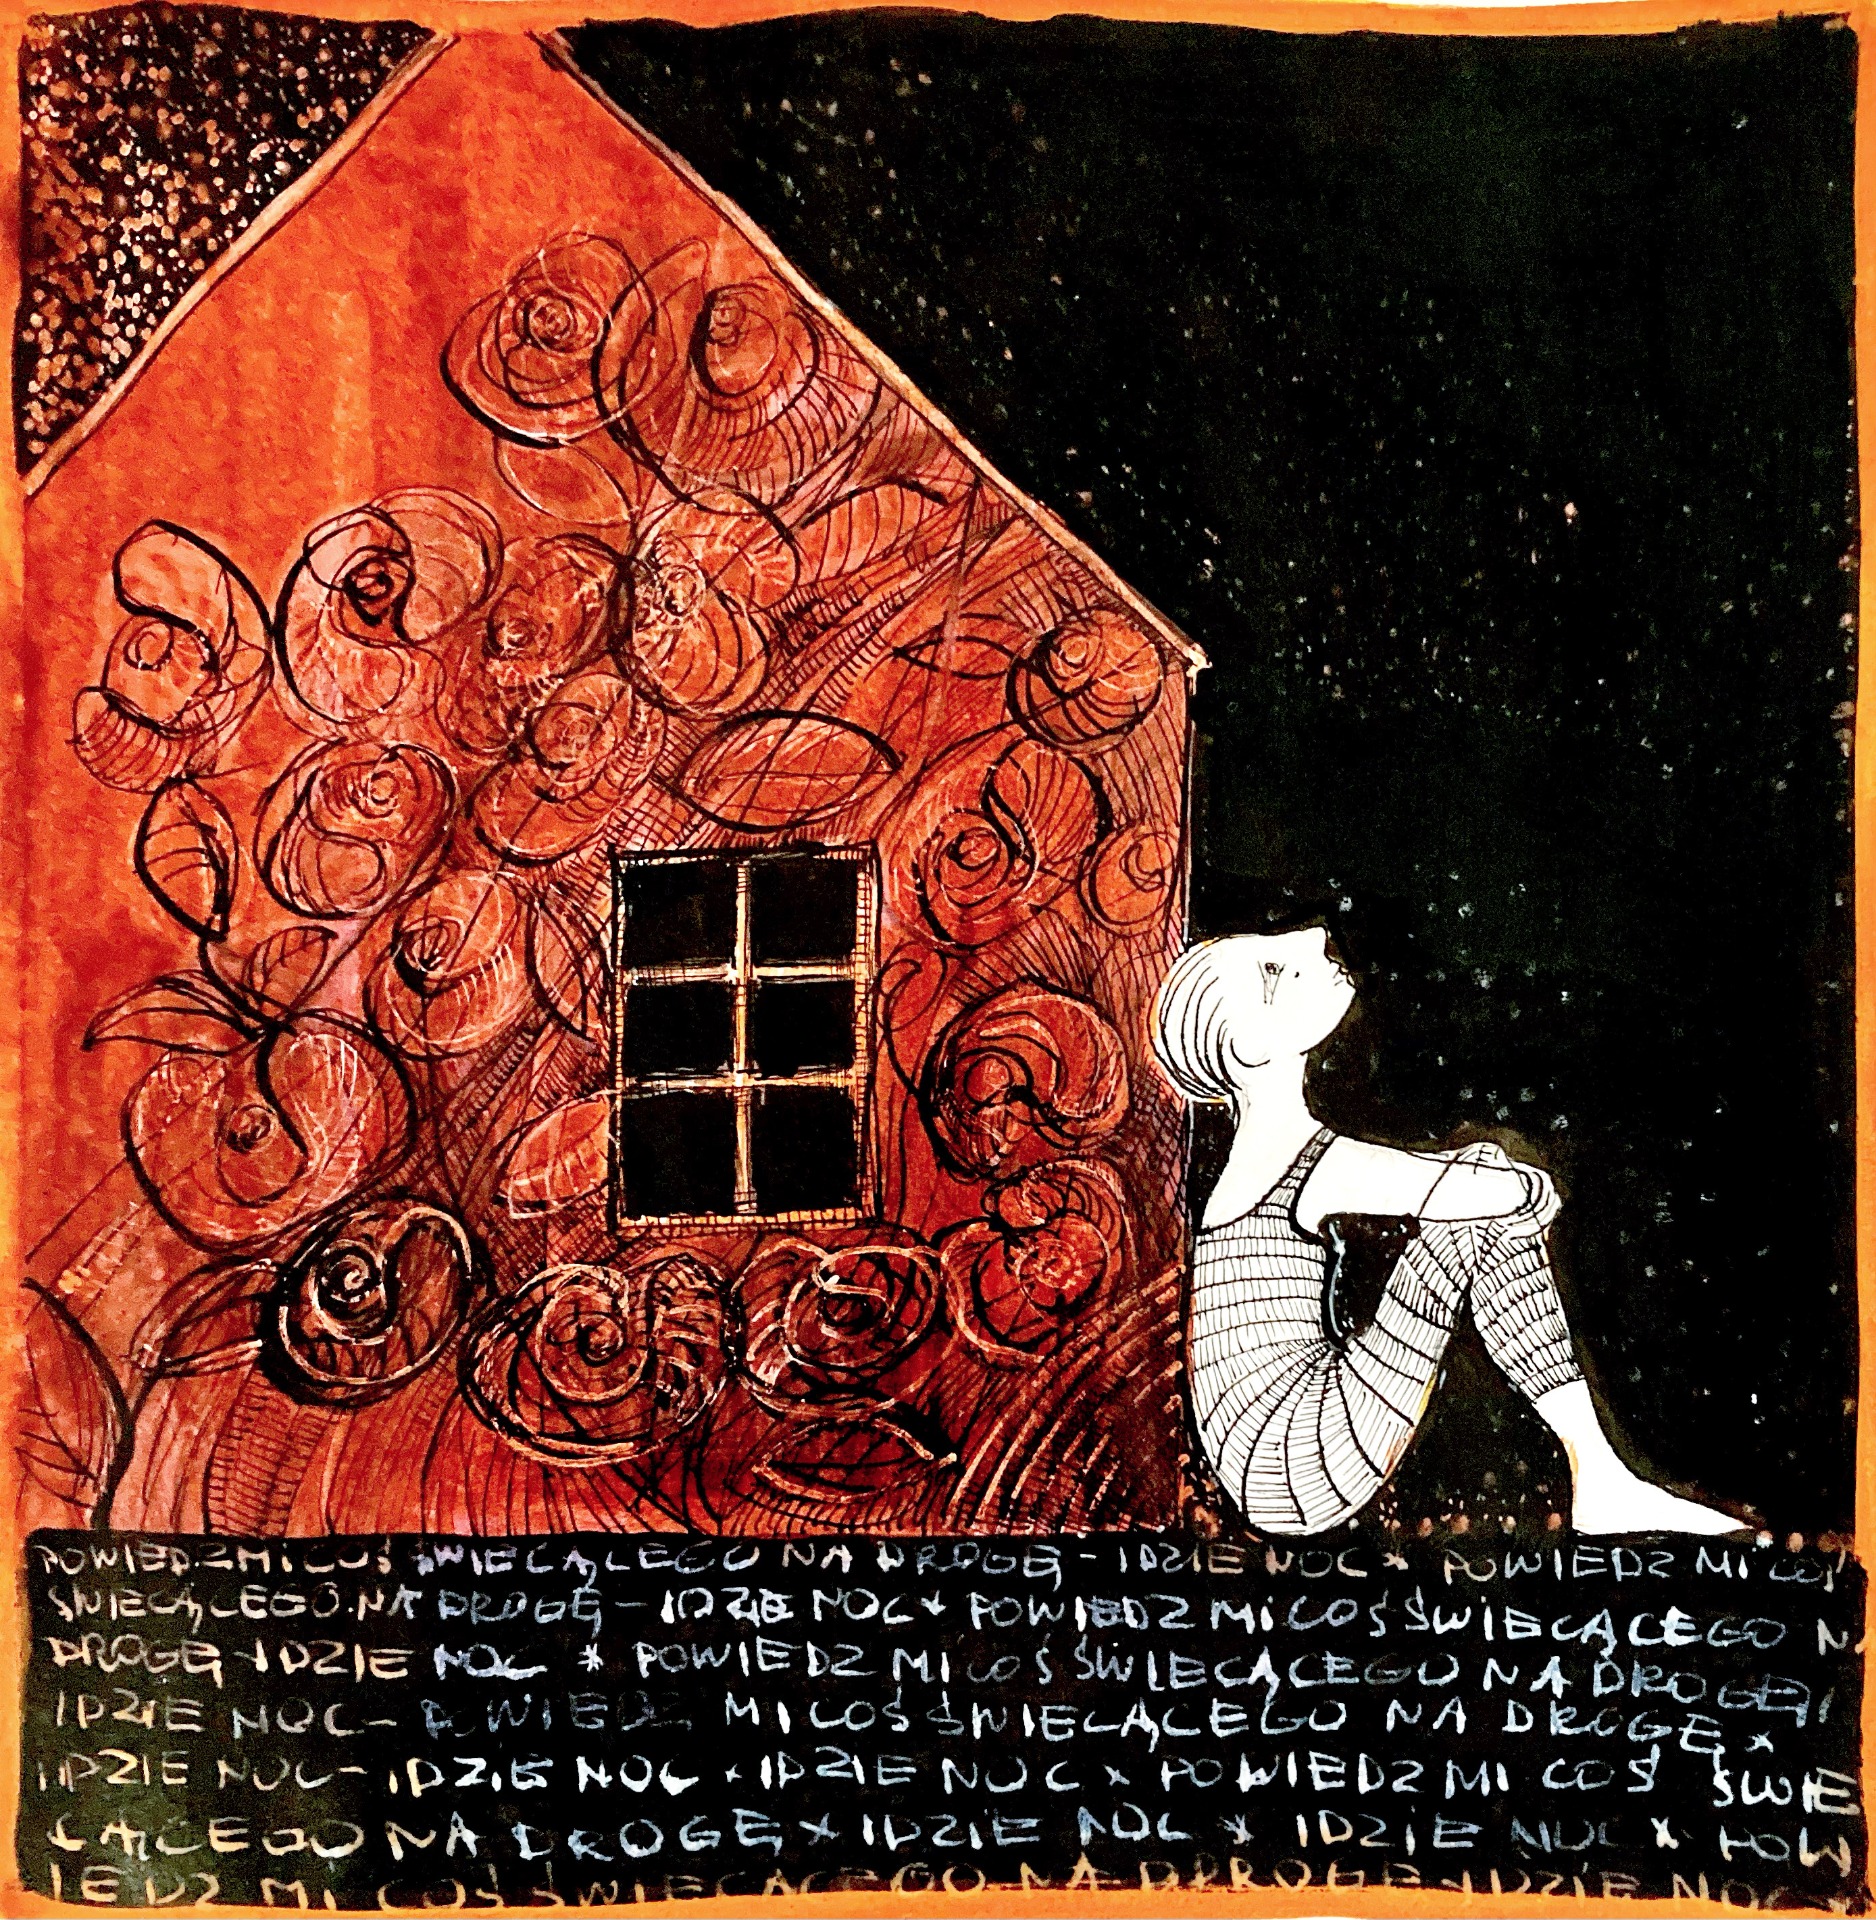 POWIEDZ MI COŚ ŚWIECĄCEGO NA DROGĘ - IDZIE NOC * POWIEDZ MI COŚ
ŚWIECĄCEGO NA DROGĘ - IDZIE NOC * POWIEDZ MI COŚ ŚWIECĄCEGO N
DROGĘ - IDZIE NOC * POWIEDZ MI COŚ ŚWIECĄCEGO NA DROGĘ
IDZIE NOC - POWIEDZ MI COŚ ŚWIECĄCEGO NA DROGĘ *
IDZIE NOC - IDZIE NOC * IDZIE NOC * POWIEDZ MI COŚ ŚWIE
CĄCEGO NA DROGĘ * IDZIE NOC * IDZIE NOC * POW
IEDZ MI COŚ ŚWIECĄCEGO NA DROGĘ - IDZIE NOC *